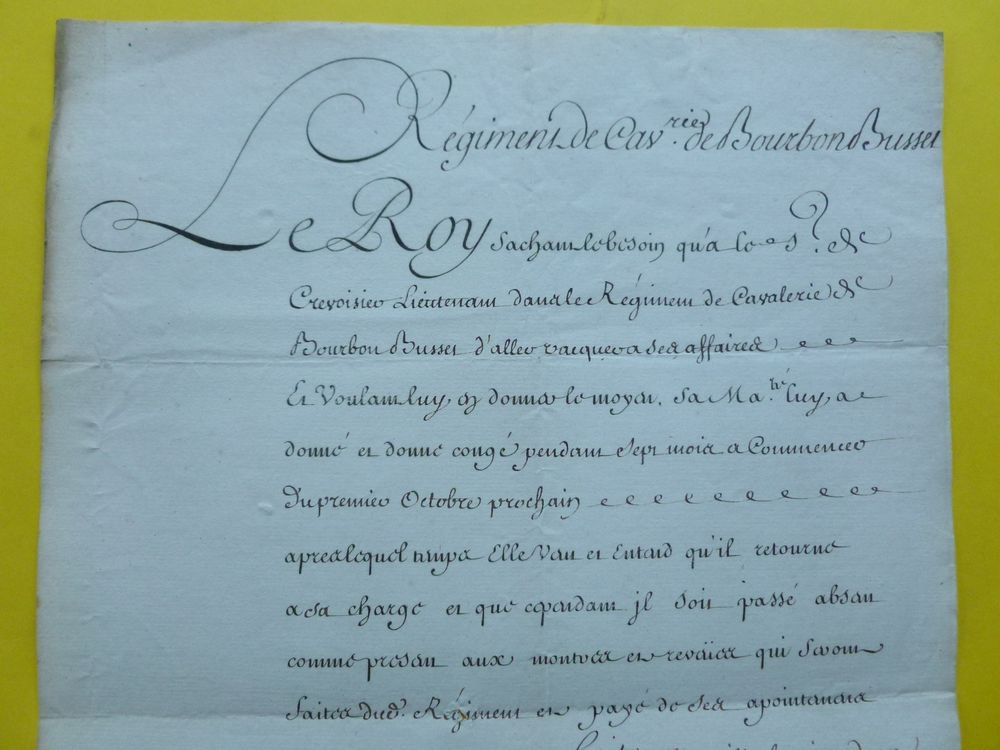 Régiment de Cav.rie de Bourbon Busset
Le Roy sachant le besoin qu'a le Sr. de
Crevoisier Lieutenant dans le Régiment de Cavalerie de
Bourbon Busset d'aller vacquer a ses affaires
Et Voulant luy en donner le moyen, Sa Ma.té luy a
donné et donne congé pendant sept mois a Commencer
Du premier Octobre prochain
apres lequel temps Elle Veut et Entend qu'il retourne
a sa charge et que cependant jl soit passé absent
comme present aux montres et reveües qui seront
faites dud. Régiment et payé de ses apointemens